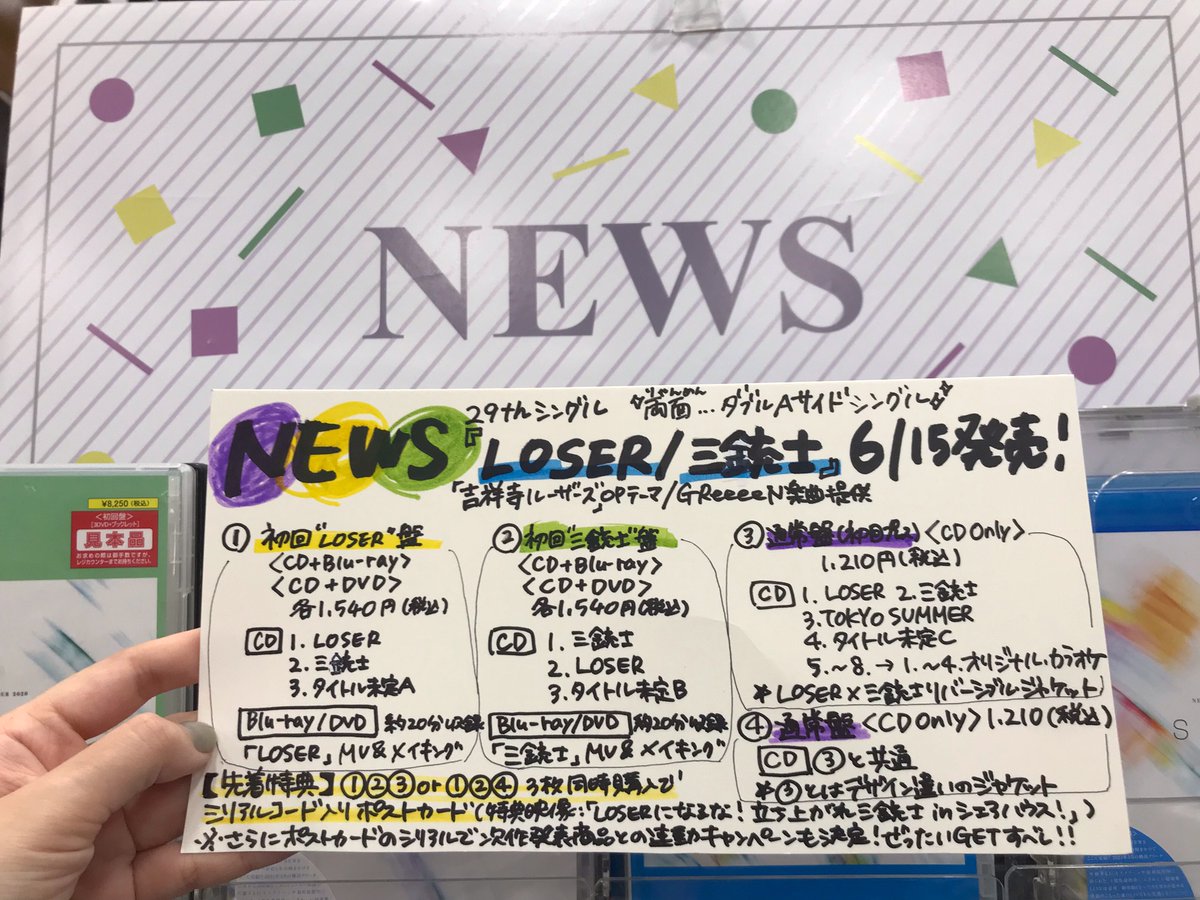 NEWS
NEWS
29thシングル
じゃんめん
両面…ダブルAサイドシングル
『LOSER/三銃士』6/15発売!
「吉祥寺ルーザーズ」OPテーマ/GReeeeN楽曲提供
① 初回"LOSER"盤
<CD+Blu-ray>
<CD+DVD>
各1,540円(税込)
CD 1. LOSER
2. 三銃士
3. タイトル未定A
Blu-ray/DVD 約20分収録
「LOSER」MV&メイキング
② 初回"三銃士"盤
<CD+Blu-ray>
<CD+DVD>
各1,540円(税込)
CD 1. 三銃士
2. LOSER
3. タイトル未定B
Blu-ray/DVD 約20分収録
「三銃士」MV&メイキング
③ 通常盤(初回プレス)<CD Only>
1,210円(税込)
CD 1. LOSER 2. 三銃士
3. TOKYO SUMMER
4. タイトル未定C
5.~8.→1.~4.オリジナル・カラオケ
*LOSER×三銃士リバーシブルジャケット
④ 通常盤<CD Only>1,210(税込)
CD ③と共通
*③とはデザイン違いのジャケット
【先着特典】①②③or①②④ 3枚同時購入で
シリアルコード入りポストカード(特典映像:「LOSERになるな!立ち上がれ三銃士 in シェアハウス!」)
※さらにポストカードのシリアルで次作発表商品との連動キャンペーンも決定!ぜったいGETすべし!!
¥8,250(税込)
<初回盤>
[3DVD+ブックレット]
見本品
お求めの際は御手数ですが、
レジカウンターまでお持ちください。